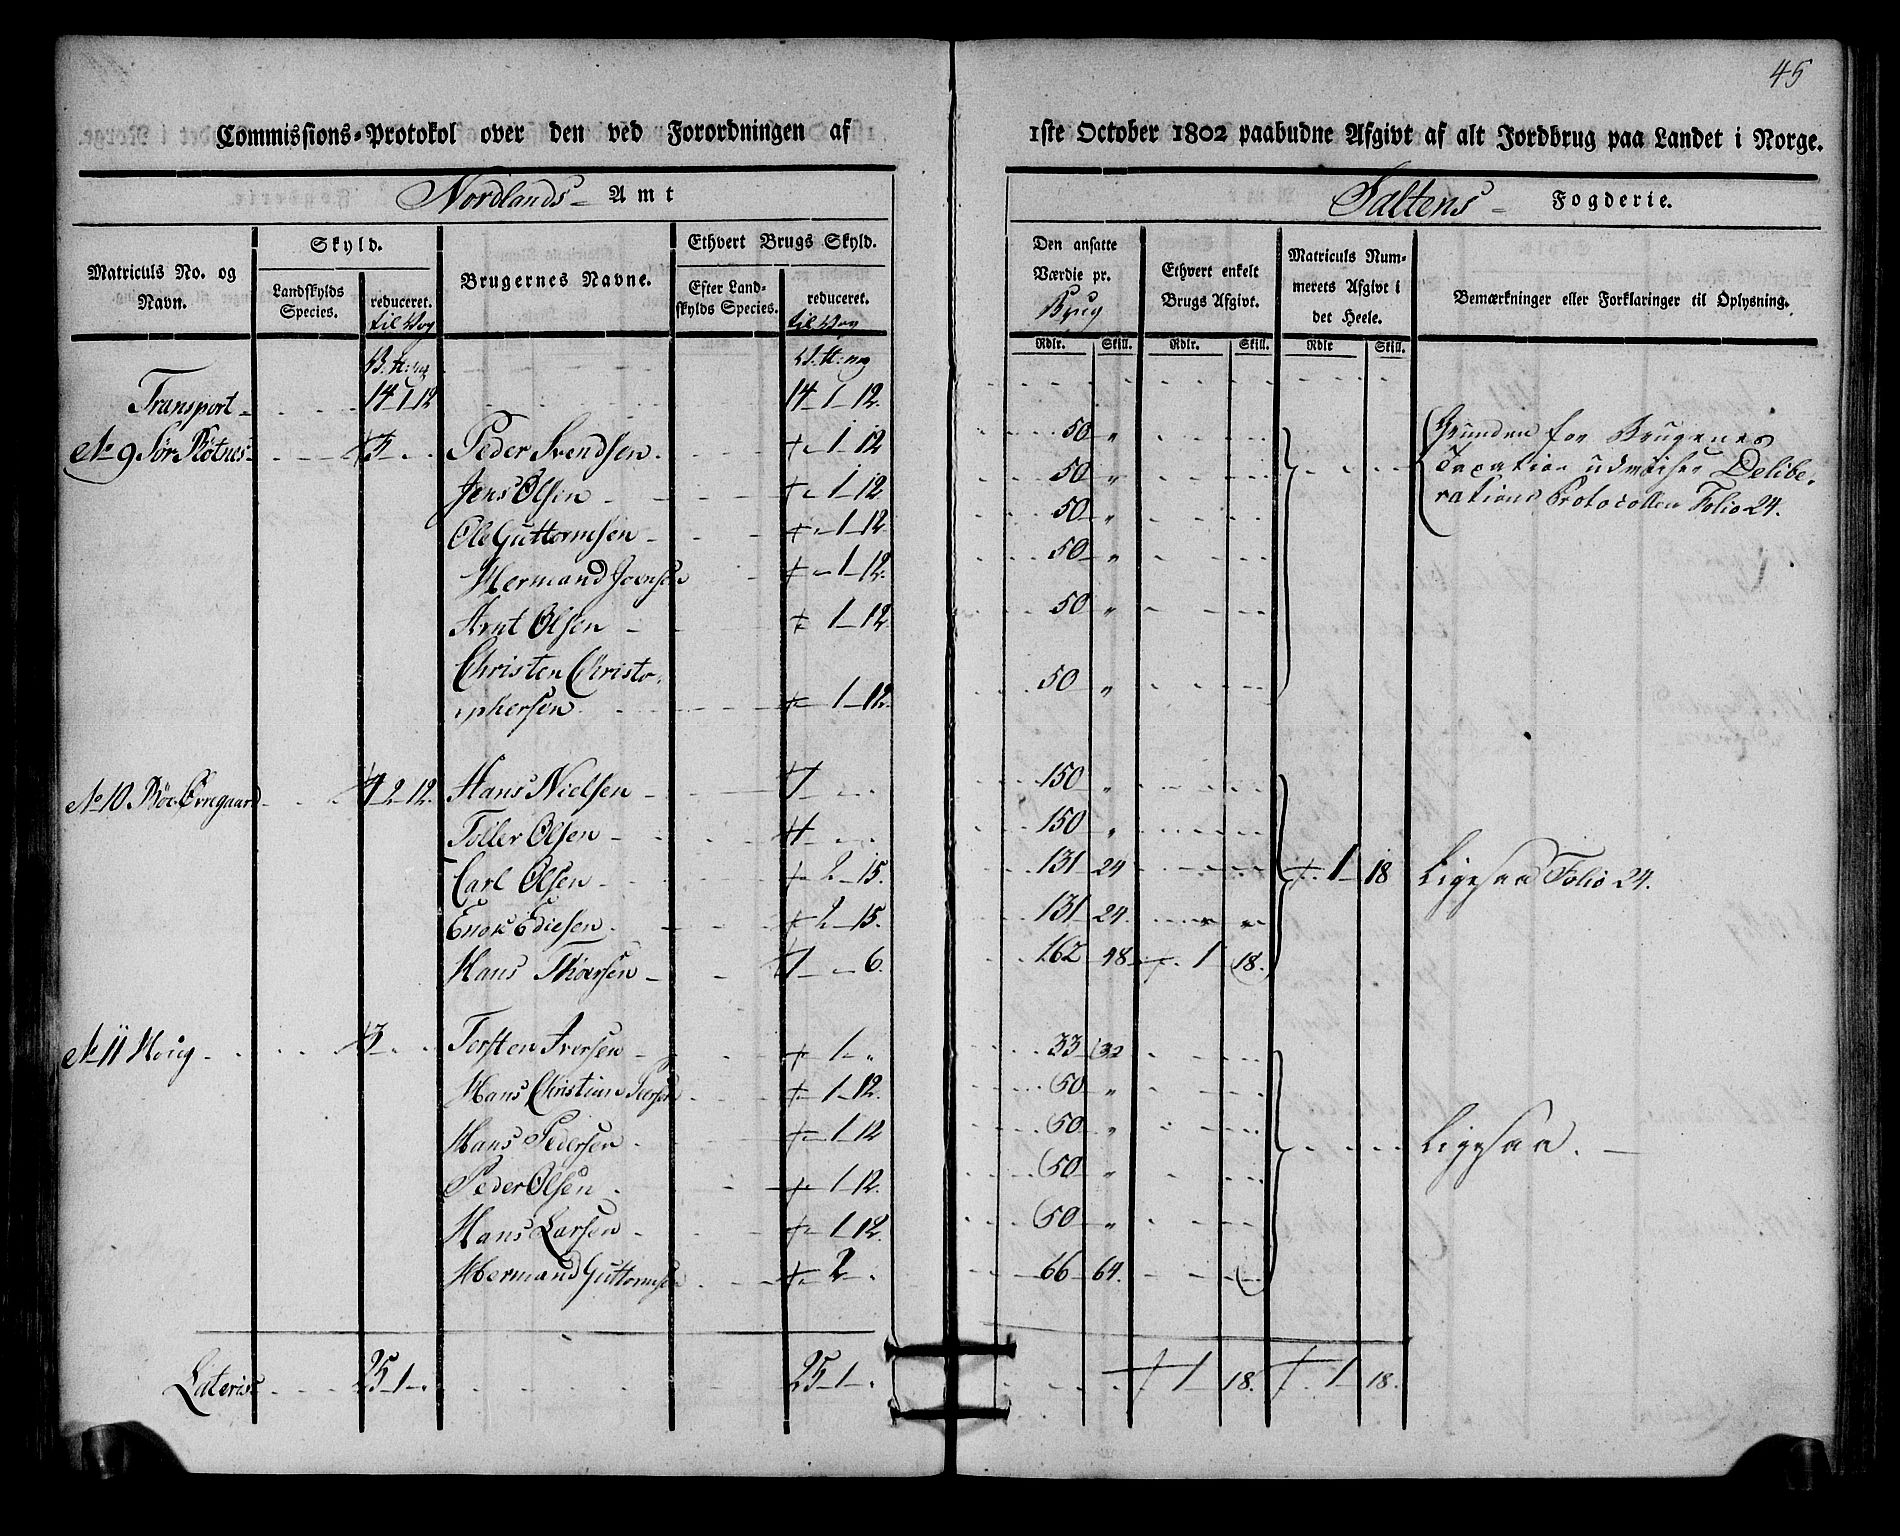 45
Commissions-Protokol over den ved Forordningen af 1ste October 1802 paabudne Afgivt af alt Jordbrug paa Landet i Norge.
Nordlands Amt Saltens Fogderie.
Matriculs No. og Navn.
Skyld.
Landskylds Species.
reduceret.
til Vog
Brugernes Navne.
Ethvert Brugs Skyld.
Efter Landskylds Species.
reduceret.
til Vog
Den ansatte Værdie pr.
Brug
Ethvert enkelt Brugs Afgivt.
Matriculs Nummerets Afgivt i det Heele.
Bemærkninger eller Forklaringer til Oplysning.
Rdlr. Skill. Rdlr. Skill. Rdlr Skill.
Transport 14-1-12 14-1-12.
No 9 Sør Røtnes Peder Svendsen 1 12 50 "
Jens Olsen 1 12 50 "
Ole Guttormsen 1-12. 50 "
Hermand Joensen 1-12. 50 "
Arnt Olsen 1-12. 50 "
Christen Christophersen 1-12. 50 "
Grunden for Brugenes
Taxation udviser Delibe-
rations Protocollen Folio 24.
No 10 Bøe Øvregaard 2-12. Hans Nielsen 150 "
Toller Olsen 150 "
Carl Olsen 2-15. 131 24
Enok Ediesen 2-15. 131 24.
Hans Thoersen 6. 162 48 1 18.
1 18 Ligesaa Folio 24.
No 11 Houg 3 Torsten Iversen 1 " 33 32
Hans Christian Iversen 1-12. 50 "
Hans Pedersen 1-12 50 "
Peder Olsen 1-12. 50 "
Hans Larsen 1-12. 50 "
Hermand Guttormsen 2 66 64.
Ligesaa.
Lateris 25-1 25-1 1 18. 1 18.